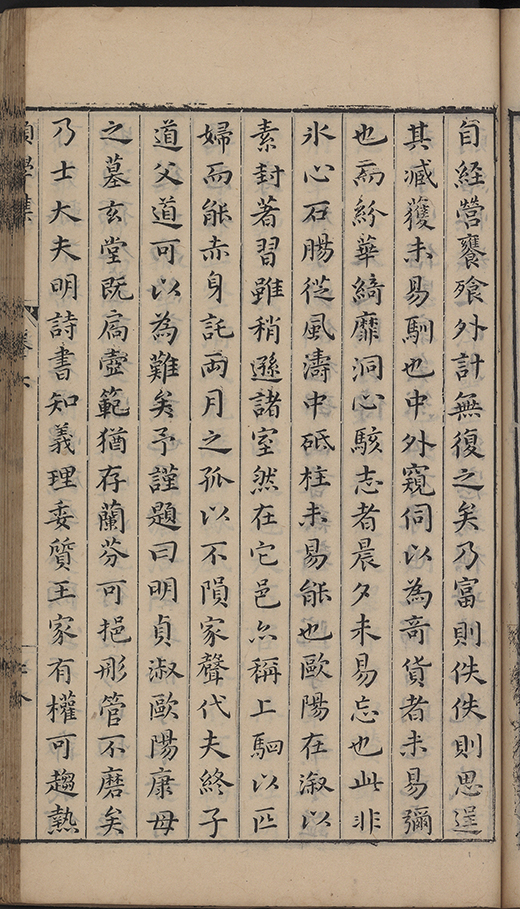 自経營饔飱外計無復之矣乃富則佚佚則思逞
其臧獲未易馴也中外窺伺以為竒貨者未易彌
也而紛華綺靡洞心駭志者晨夕未易忘也此非
氷心石腸從風濤中砥柱未易能也歐陽在溆以
素封著習雖稍遜諸室然在它邑亦稱上駟以匹
婦而能赤身託兩月之孤以不隕家聲代夫終子
道父道可以為難矣予謹題曰明貞淑歐陽康母
之墓玄堂既扃壼範猶存蘭芬可挹彤管不磨矣
乃士大夫明詩書知義理委質王家有權可趨熱